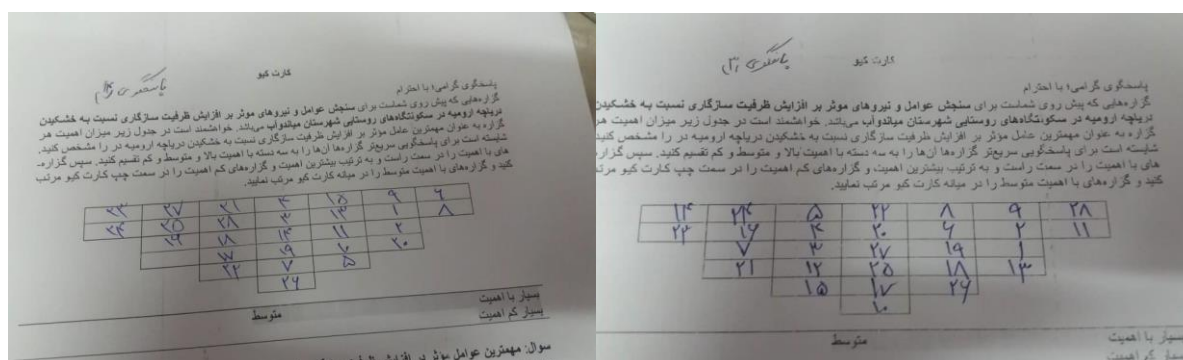 کارت کیو
پاسخگوی گرامی؛ با احترام
گزاره‌هایی که پیش روی شماست برای سنجش عوامل و نیروهای موثر بر افزایش ظرفیت سازگاری نسبت به خشکیدن
دریاچه ارومیه در سکونتگاه‌های روستایی شهرستان میاندوآب می‌باشد. خواهشمند است در جدول زیر میزان اهمیت هر
گزاره به عنوان مهمترین عامل مؤثر بر افزایش ظرفیت سازگاری نسبت به خشکیدن دریاچه ارومیه در را مشخص کنید.
شایسته است برای پاسخگویی سریع‌تر گزاره‌ها آن‌ها را به سه دسته با اهمیت بالا و متوسط و کم تقسیم کنید. سپس گزاره-
های با اهمیت را در سمت راست و به ترتیب بیشترین اهمیت و گزاره‌های کم اهمیت را در سمت چپ کارت کیو مرتب
کنید و گزاره‌های با اهمیت متوسط را در میانه کارت کیو مرتب نمایید.
۶ ۹ ۱۵ ۴ ۲۱ ۲۷
۸ ۱ ۱۳ ۳ ۲۸ ۲۵ ۲۴
۲ ۱۱ ۱۴ ۱۸
۲۰ ۱۰ ۱۹ ۱۷
۵ ۷ ۲۲
۲۶
بسیار با اهمیت
متوسط
بسیار کم اهمیت
کارت کیو
پاسخگوی گرامی؛ با احترام
گزاره‌هایی که پیش روی شماست برای سنجش عوامل و نیروهای موثر بر افزایش ظرفیت سازگاری نسبت به خشکیدن
دریاچه ارومیه در سکونتگاه‌های روستایی شهرستان میاندوآب می‌باشد. خواهشمند است در جدول زیر میزان اهمیت هر
گزاره به عنوان مهمترین عامل مؤثر بر افزایش ظرفیت سازگاری نسبت به خشکیدن دریاچه ارومیه در را مشخص کنید.
شایسته است برای پاسخگویی سریع‌تر گزاره‌ها آن‌ها را به سه دسته با اهمیت بالا و متوسط و کم تقسیم کنید. سپس گزاره-
های با اهمیت را در سمت راست و به ترتیب بیشترین اهمیت و گزاره‌های کم اهمیت را در سمت چپ کارت کیو مرتب
کنید و گزاره‌های با اهمیت متوسط را در میانه کارت کیو مرتب نمایید.
۲۸ ۹ ۸ ۲۲ ۵ ۲۴ ۱۴
۱۱ ۲ ۶ ۲۰ ۴ ۱۶ ۲۳
۱ ۱۹ ۲۷ ۳ ۷
۱۳ ۱۸ ۲۵ ۱۲ ۲۱
۲۶ ۱۷ ۱۵
۱۰
بسیار با اهمیت
متوسط